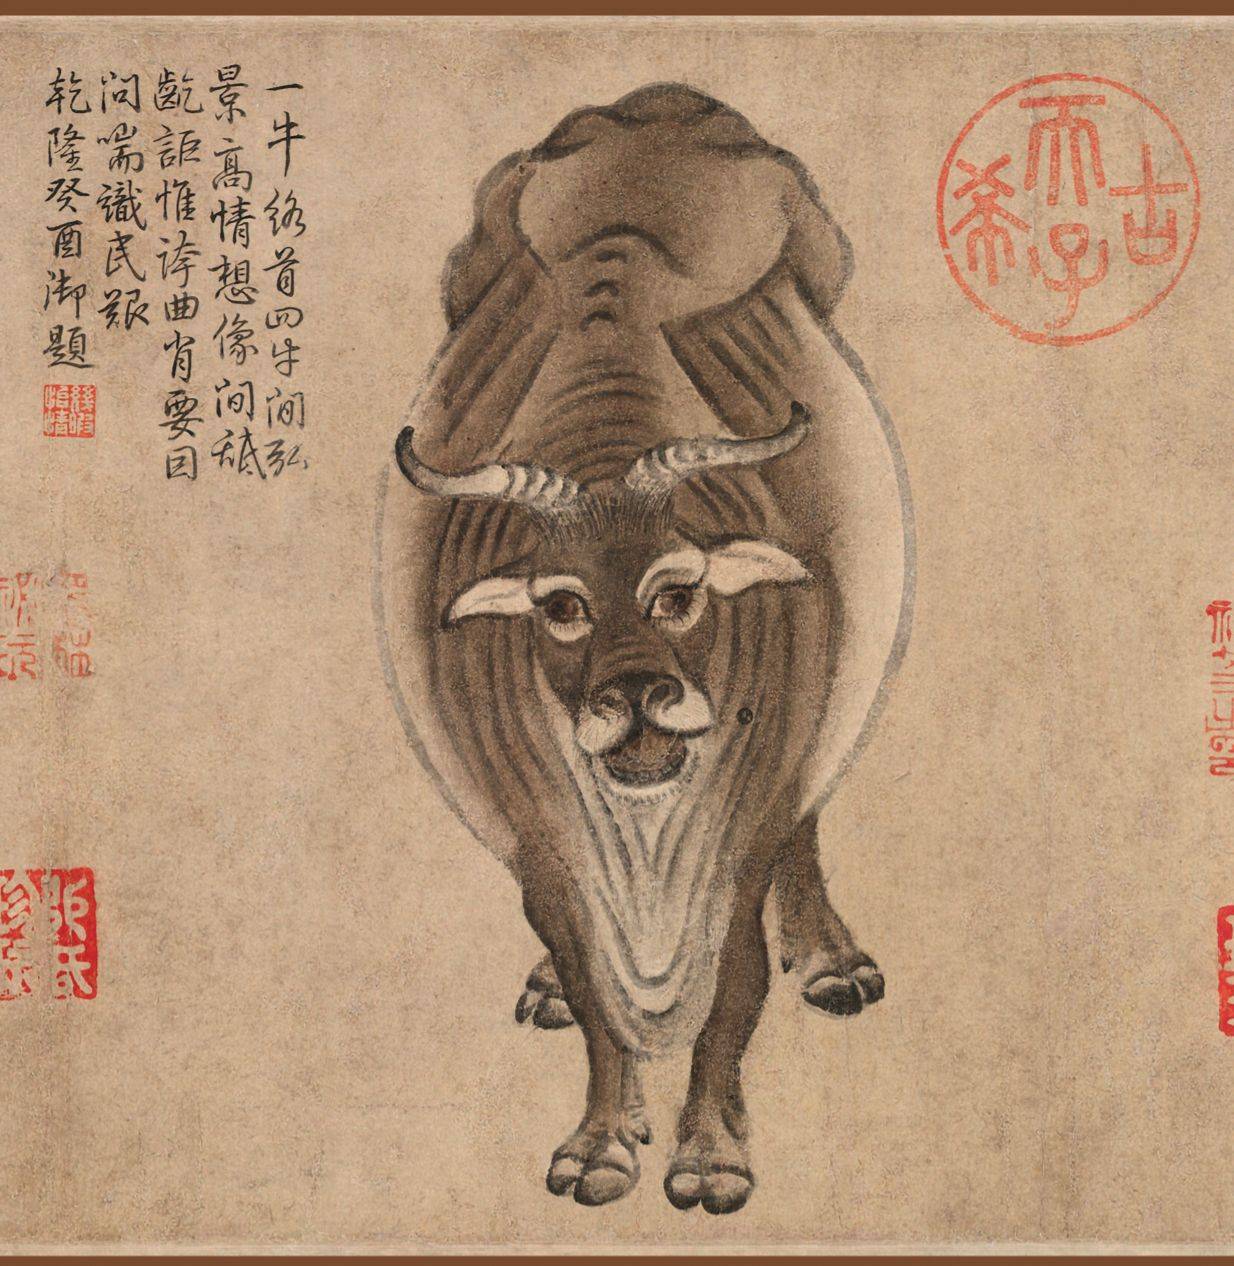 古希天子
一牛絡首四牛間弘
景高情想像間舐
齕詎惟誇曲肖要因
問喘識民艱
乾隆癸酉御題
幾暇怡情